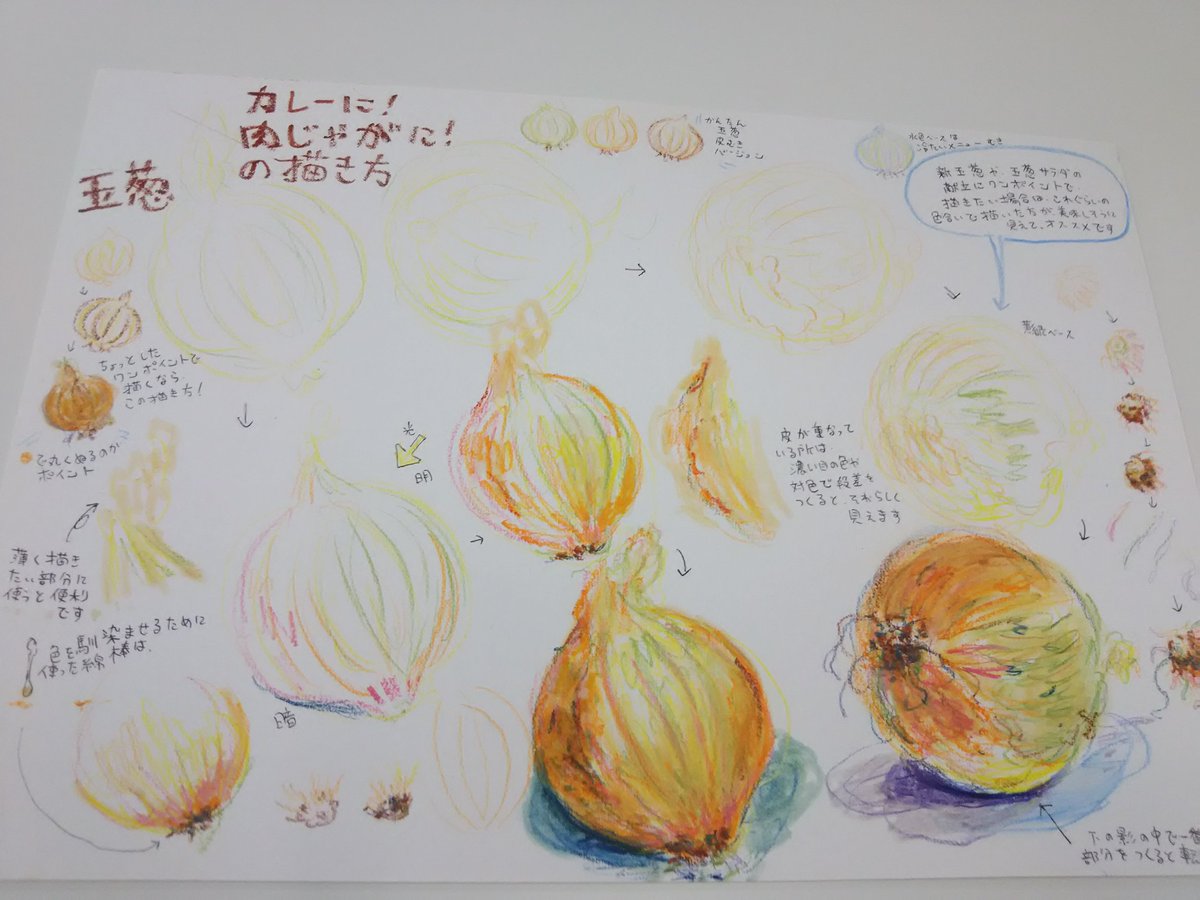 カレーに!
肉じゃがに!
の描き方
玉葱
かんたん
玉葱
皮むき
バージョン
水色ベースは
冷たいメニューむき
新玉葱や、玉葱サラダの
献立にワンポイントで、
描きたい場合は、これぐらいの
色合いで描いた方が、美味しそうに
見えて、オススメです
黄緑ベース
ちょっとした
ワンポイントで
描くなら、
この描き方!
で丸くぬるのが
ポイント
光
明
皮が重なって
いる所は、
濃い目の色や
対色で段差を
つくると、それらしく
見えます
薄く描き
たい部分に
使うと便利
です
色を馴染ませるために
使った綿棒は、
暗
下の影の中で一番
部分をつくると